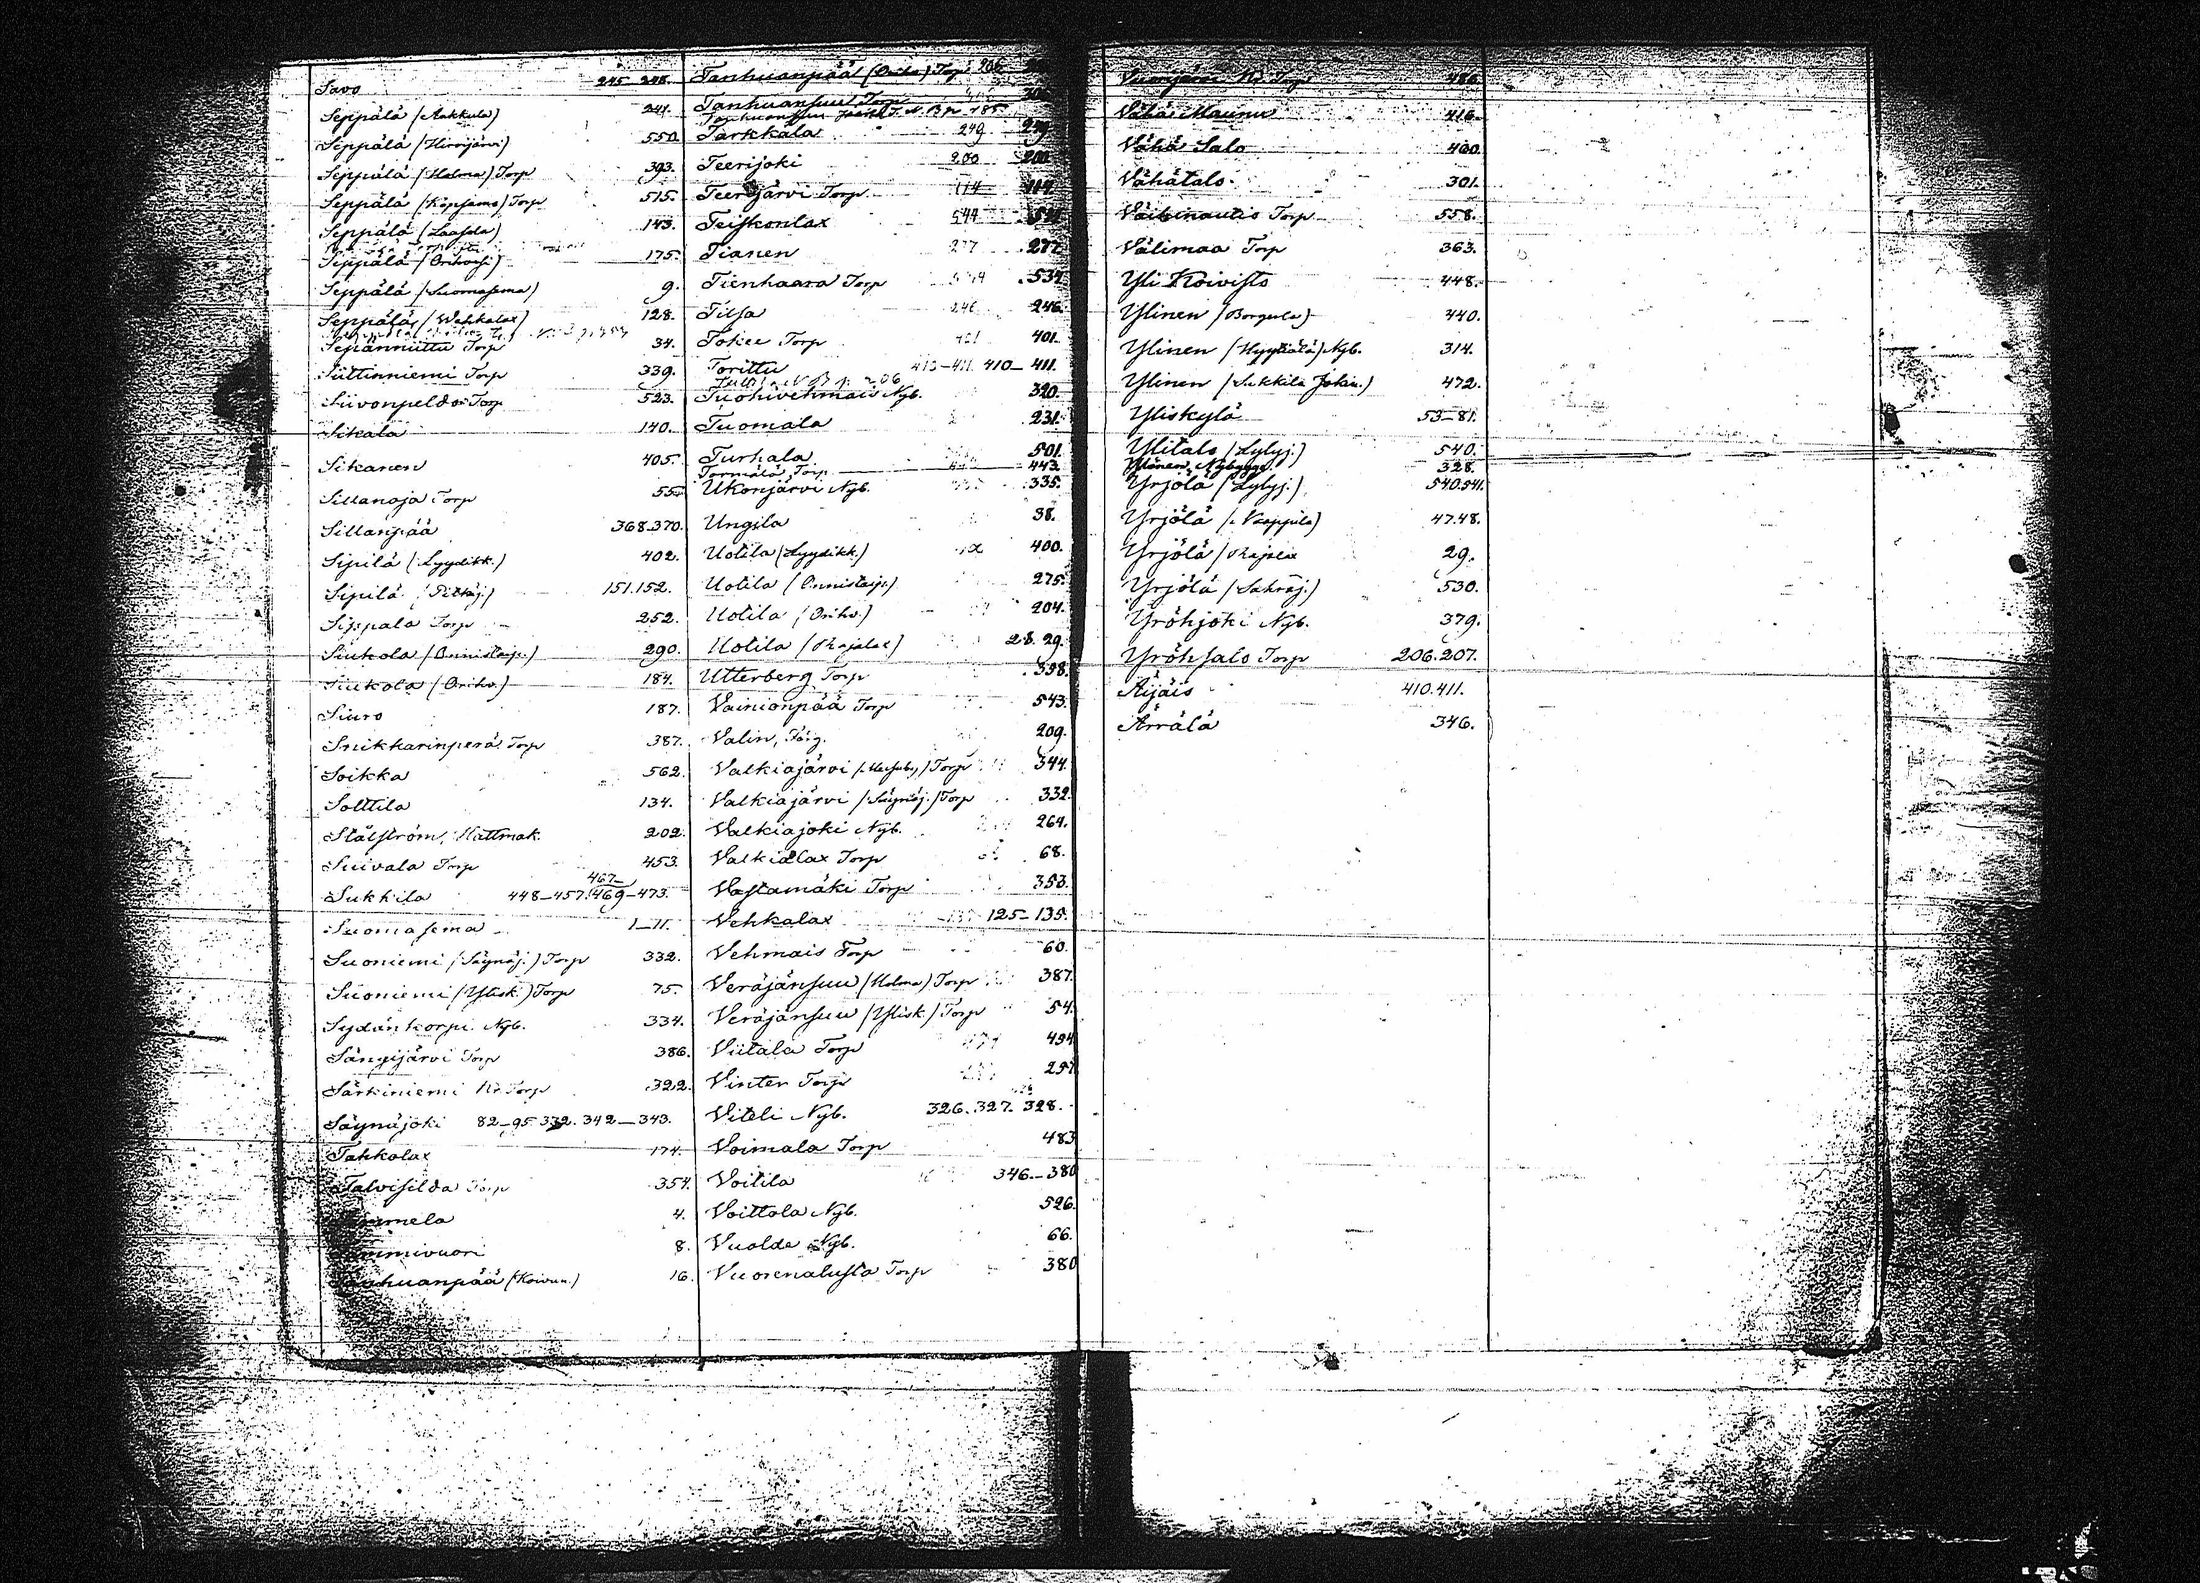 Savo 245-248.
Seppälä (Aakkula) 241.
Seppälä (Hirvijärvi) 550.
Seppälä (Holma) Torp 393.
Seppälä (Köpsama) Torp 515.
Seppälä (Laasola) 143.
Seppälä (Orihvesi) 175.
Seppälä (Suomasema) 9.
Seppälä (Wehkalax) 128.
Sepänniittu Torp 34.
Siittinniemi Torp 339.
Siivonpeldo Torp 523.
Sikala 140.
Sikanen 405.
Sillanoja Torp 55.
Sillanpää 368.370.
Sipilä (Lyydikk.) 402.
Sipilä (Pitkäj.) 151.152.
Sippala Torp 252.
Siukola (Onnistaip.) 290.
Siukola (Orihv.) 184.
Siuro 187.
Snikkarinperä Torp 387.
Soikka 562.
Solttila 134.
Stålström, Hattmak. 202.
Suivala Torp 453.
467-
Sukkila 448-457. 469-473.
Suomasema 1-11.
Suoniemi (Säynäj.) Torp 332.
Suoniemi (Ylisk.) Torp 75.
Sydänkorpi Nyb. 334.
Sängijärvi Torp 386.
Särkiniemi Kr. Torp 322.
Säynäjoki 82-95. 332. 342-343.
Takkolax 174.
Talvisilda Torp 354.
4.
8.
Tanhuanpää (Koivun.) 16.
Tanhuanpää (Orihv.) Torp 206
Tanhuansuu Torp
Tarkkala 249 249
Teerijoki 200 200
Teerijärvi Torp 114 114
Teiskonlax 544
Tianen 277 277
Tienhaara Torp 534
Tilsa 246 246.
Tokee Torp 401 401.
Torittu 410-411. 410-411.
Tuohivehmais Nyb. 320.
Tuomala 231.
Turhala 501.
Tormälä Torp 443.
Ukonjärvi Nyb. 335.
Ungila 38.
Uotila (Lyydikk.) 400.
Uotila (Onnistaip.) 275.
Uotila (Orihv.) 204.
Uotila (Rajalax) 28.29.
Utterberg Torp 338.
Vainionpää Torp 543.
Valin, Färg. 209.
Valkiajärvi Torp 344.
Valkiajärvi (Säynäj.) Torp 332.
Valkiajoki Nyb. 264.
Valkialax Torp 68.
Vastamäki Torp 353.
Vehkalax 125-135.
Vehmais Torp 60.
Veräjänsuu (Holma) Torp 387.
Veräjänsuu (Ylisk.) Torp 54.
Viitala Torp 494
Vinter Torp 297
Viteli Nyb. 326. 327. 328.
Voimala Torp 483
Voitila 346-380
Voittola Nyb. 526.
Vuolde Nyb. 66.
Vuorenalusta Torp 380
Vuorijärvi Kr. Torp 486
Vähä Maunu 416.
Vähä Salo 460.
Vähätalo 301.
Torp 558.
Välimaa Torp 363.
Yli Koivisto 448.
Ylinen (Borgula) 440.
Ylinen (Hyytiälä) Nyb. 314.
Ylinen (Sukkila Jokin.) 472.
Yliskylä 53-81.
Ylitalo (Lylyj.) 540.
Ylönen Nybygge 328.
Yrjölä (Lylyj.) 540.541.
Yrjölä (Kappila) 47.48.
Yrjölä (Rajalax 29.
Yrjölä (Sahraj.) 530.
Yröhjoki Nyb. 379.
Yröhsalo Torp 206.207.
Äijäis 410.411.
Ärrälä 346.